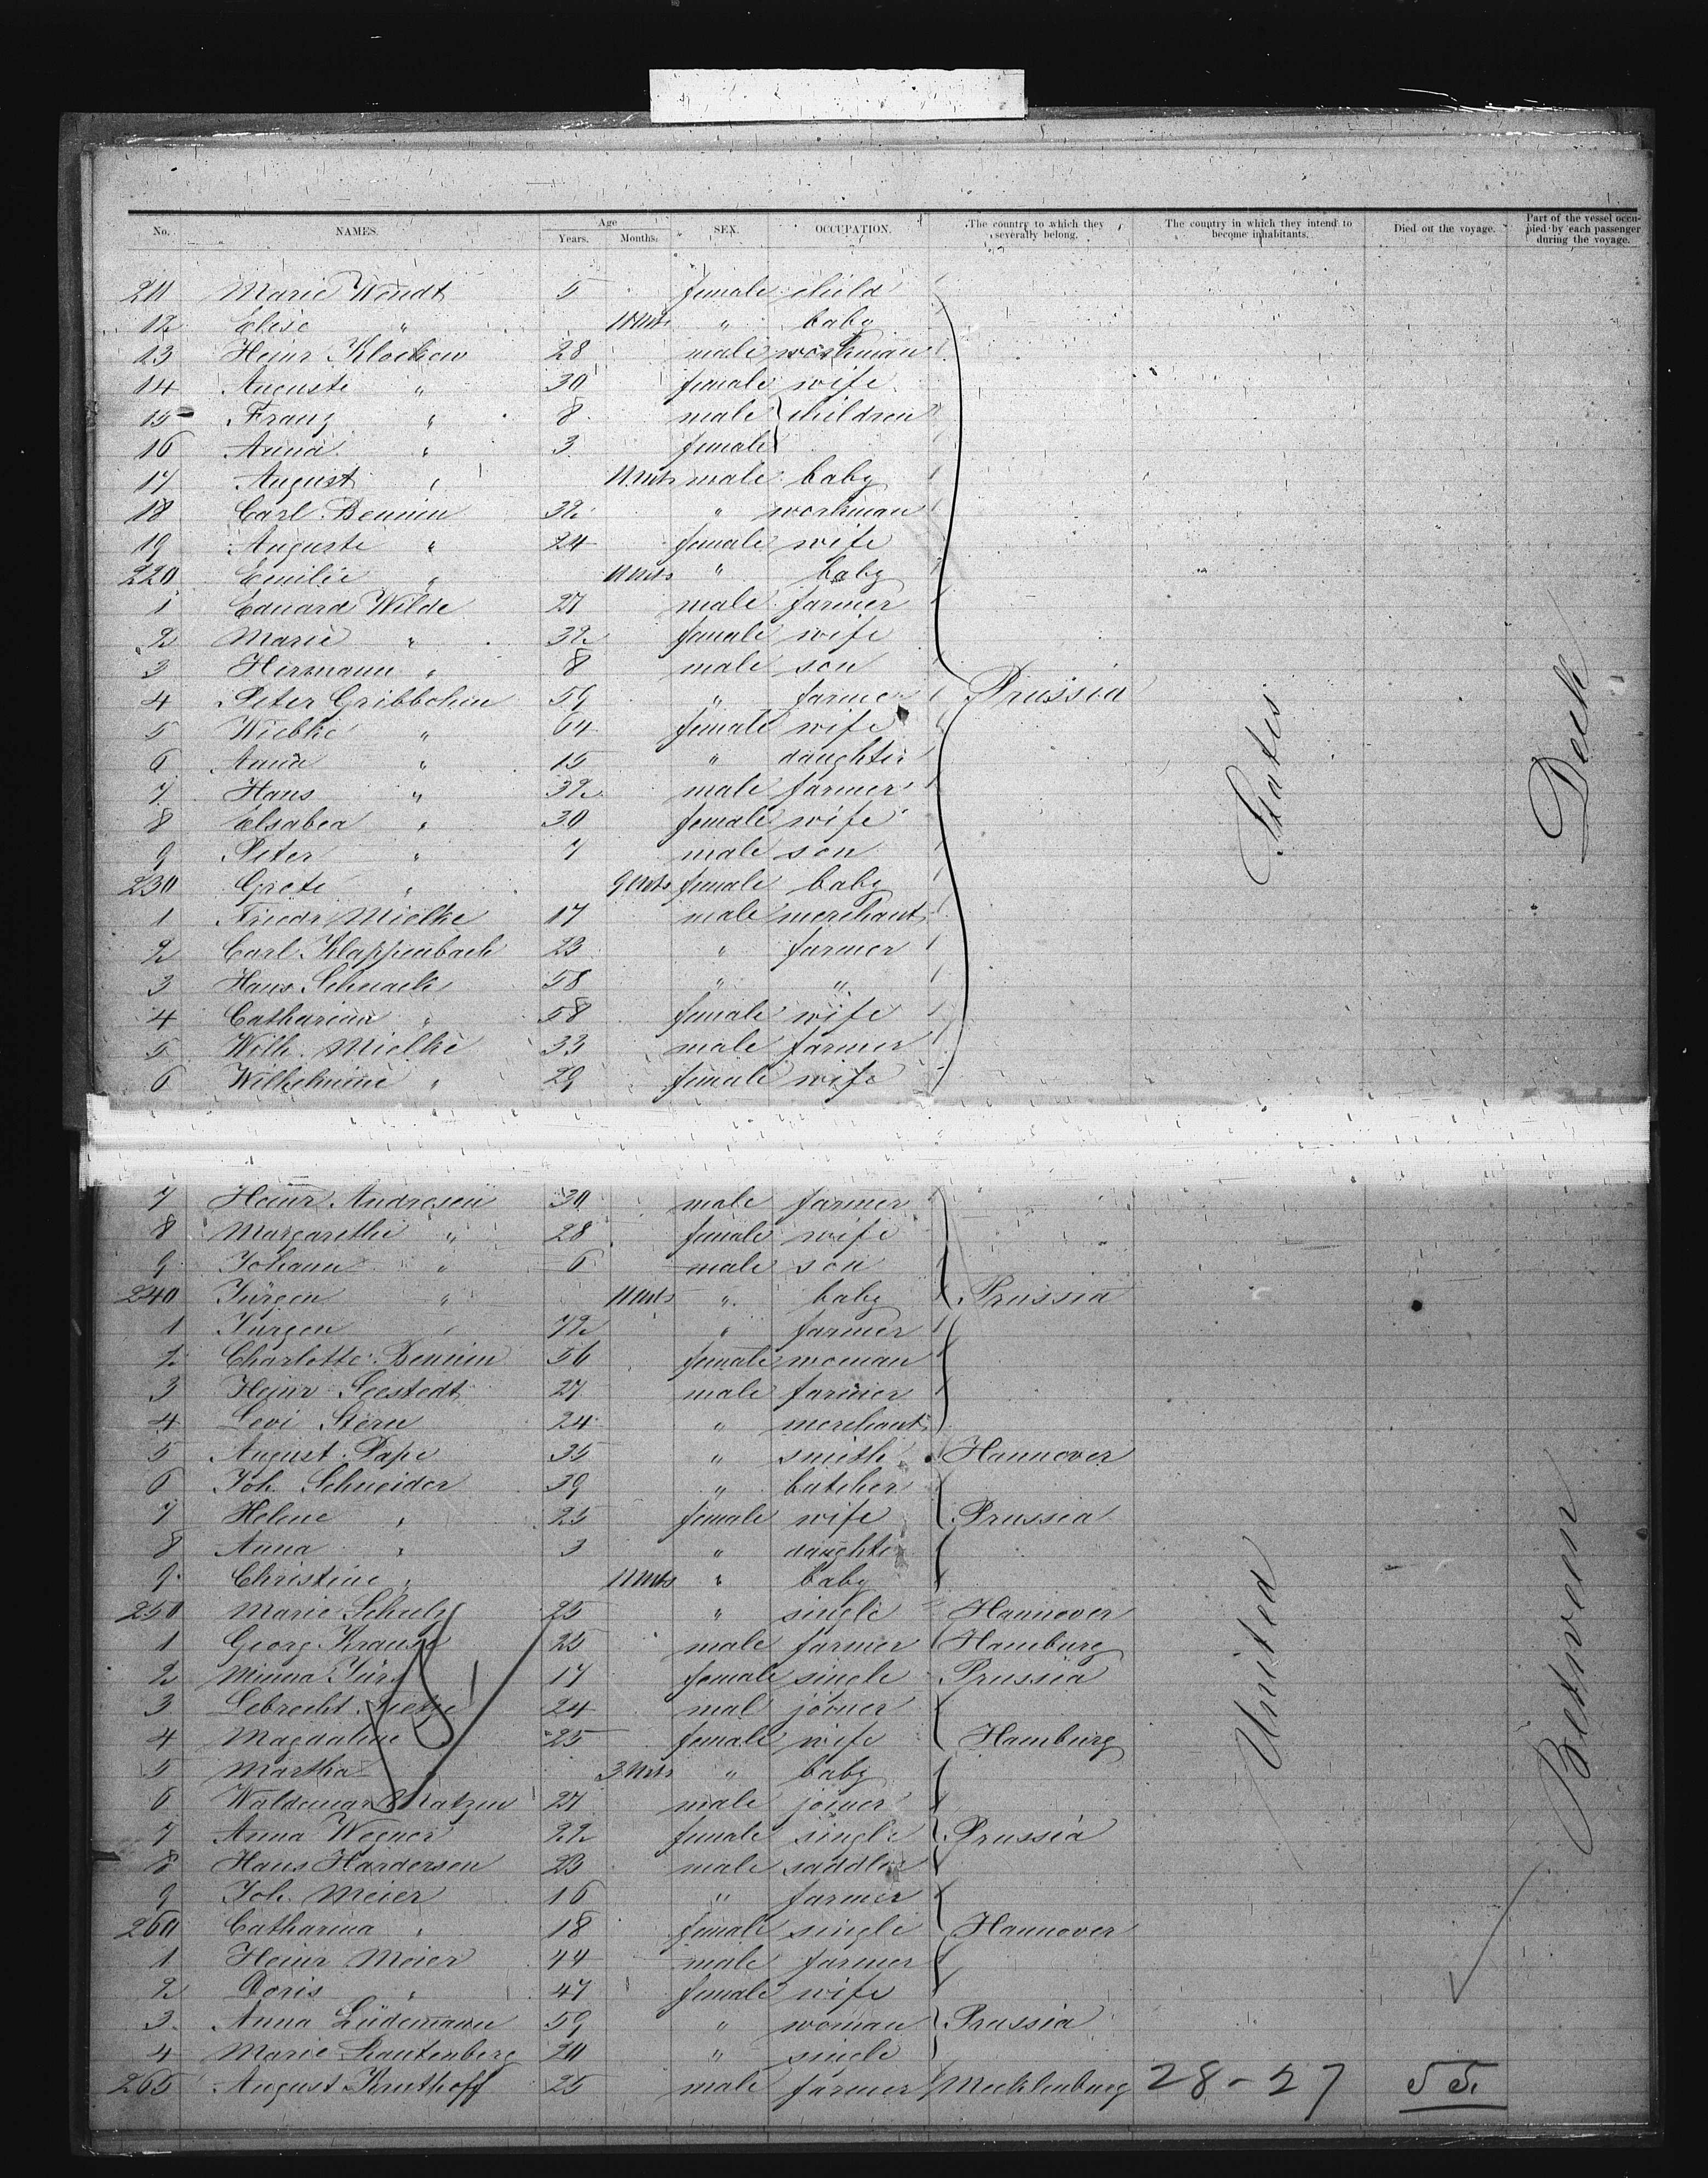 No. NAMES. Age Years. Months. SEX. OCCUPATION. The country to which they severally belong. The country in which they intend to become inhabitants. Died on the voyage. Part of the vessel occupied by each passenger during the voyage.
211 Marie Wendt 5 female child
12 Elise " 11 Mts " baby
13 Heinr Klockow 28 male workman
14 Auguste " 30 female wife
15 Franz " 8 male } children
16 Anna " 3 female }
17 August " 11 Mts male baby
18 Carl Bennin 32 " workman
19 Auguste " 24 female wife
220 Emilie " 11 Mts " baby
1 Eduard Wilde 27 male farmer
2 Marie " 32 female wife
3 Hermann " 8 male son
4 Peter Gribbohm 59 " farmer Prussia
5 Wiebke " 64 female wife
6 Anna " 15 " daughter
7 Hans " 32 male farmer
8 Elsabea " 30 female wife
9 Peter " 7 male son
230 Grete " 9 Mts female baby
1 Friedr Mielke 17 male merchant
2 Carl Klappenbach 23 " farmer
3 Hans Schnack 58 " "
4 Catharina " 58 female wife
5 Wilh. Mielke 33 male farmer
6 Wilhelmine " 29 female wife
7 Heinr Andresen 30 male farmer
8 Margarethe " 28 female wife
9 Johann " 6 male son
240 Jürgen " 11 Mts " baby Prussia
1 Jürgen " 72 " farmer
2 Charlotte Bennin 56 female woman
3 Heinr Seestedt 27 male farmer
4 Levi Stern 24 " merchant
5 August Pape 35 " smith Hannover
6 Joh. Schneider 39 " butcher
7 Helene " 25 female wife Prussia
8 Anna " 3 " daughter
9 Christine " 11 Mts " baby
250 Marie Schulz 25 " single Hannover
1 Georg Krause 25 male farmer Hamburg
2 Minna 17 female single Prussia
3 Lebrecht 24 mal joiner
4 Magdaline " 25 female wife Hamburg
5 Martha " 3 Mts " baby
6 Waldemar Matzen 27 male joiner
7 Anna Wegner 22 female single Prussia
8 Hans Hardersen 23 male saddler
9 Joh. Meier 16 " farmer
260 Catharina " 18 female single Hannover
1 Heinr Meier 44 male farmer
2 Doris " 47 female wife
3 Anna Lüdemann 59 " woman Prussia
4 Marie Rautenberg 20 " single
265 August Kruthoff 25 male farmer Mecklenburg 28-27 55
United States
Between Deck